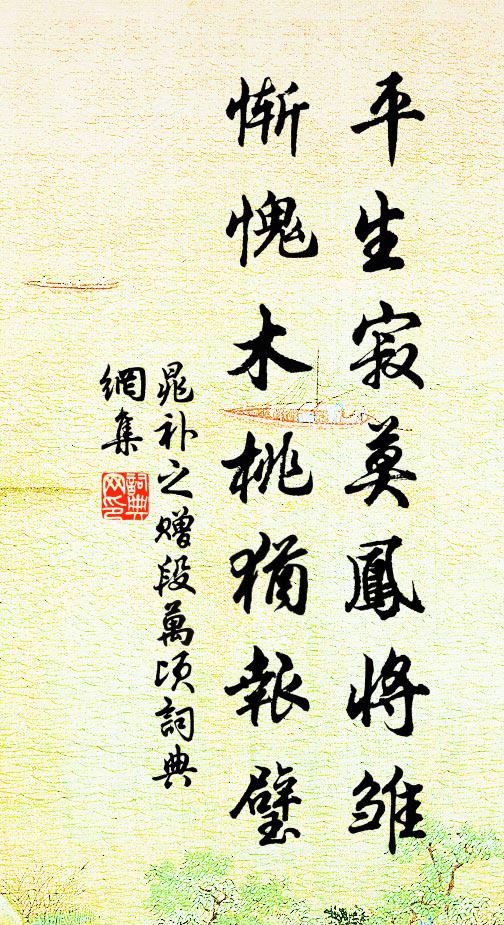 平生寂莫鳳將雛
慚愧木桃猶報璧
晁補之贈段萬頃詞典
網集
詞典
网印